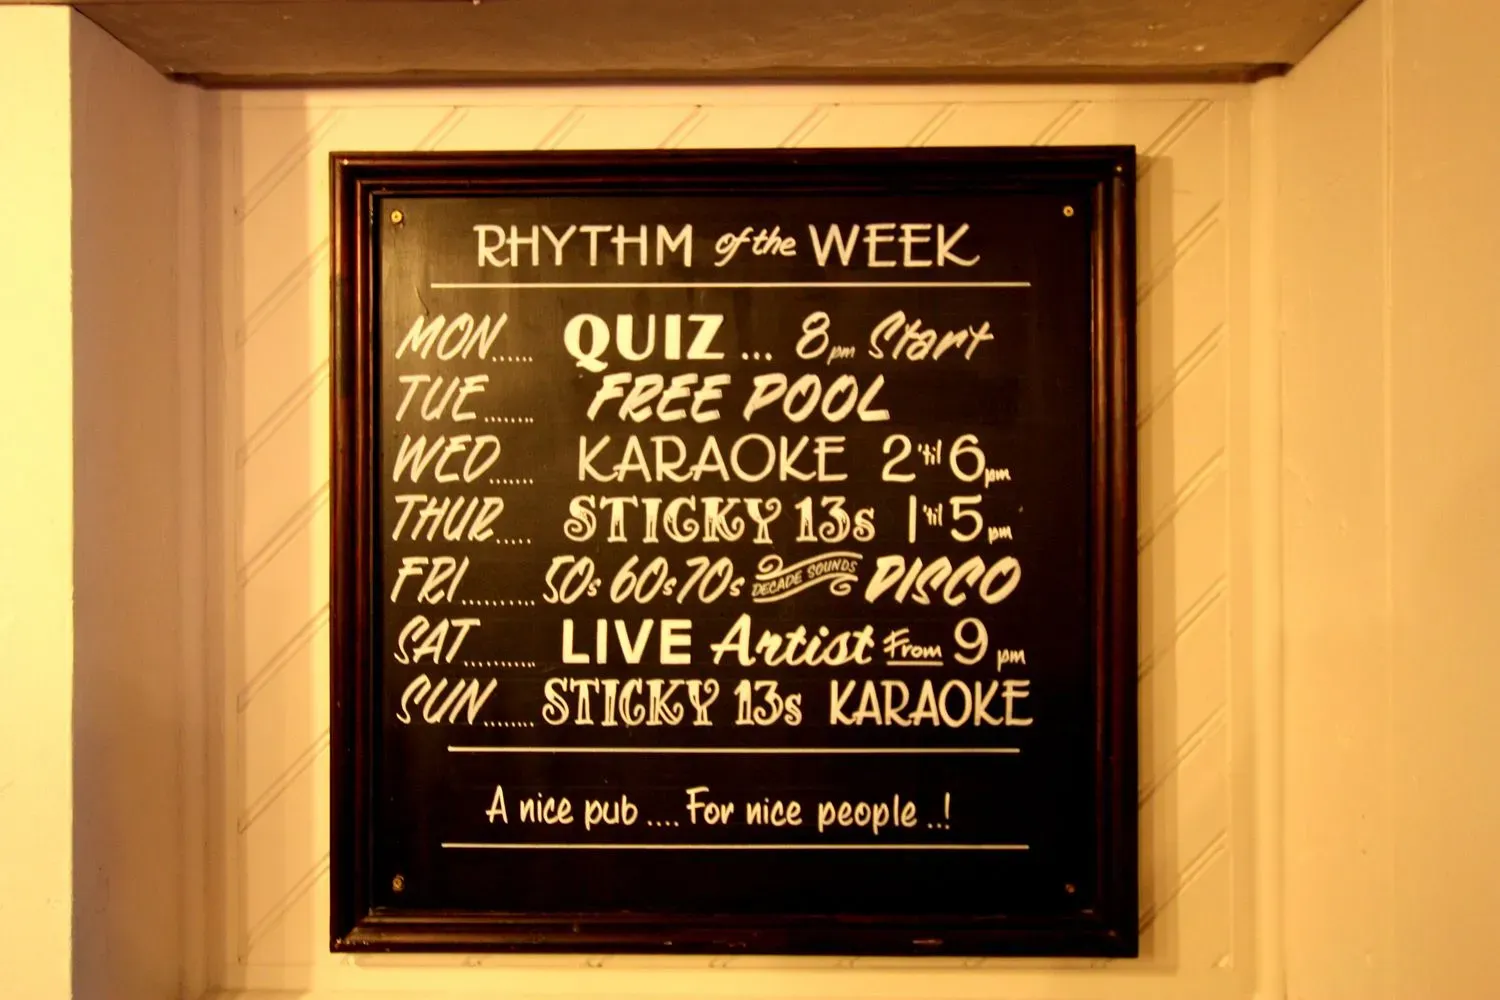 RHYTHM of the WEEK
MON...... QUIZ ... 8pm Start
TUE....... FREE POOL
WED....... KARAOKE 2 'til 6pm
THUR..... STICKY 13s 1 'til 5pm
FRI.......... 50s 60s 70s DECADE SOUNDS DISCO
SAT.......... LIVE Artist From 9pm
SUN....... STICKY 13s KARAOKE
A nice pub .... For nice people ..!